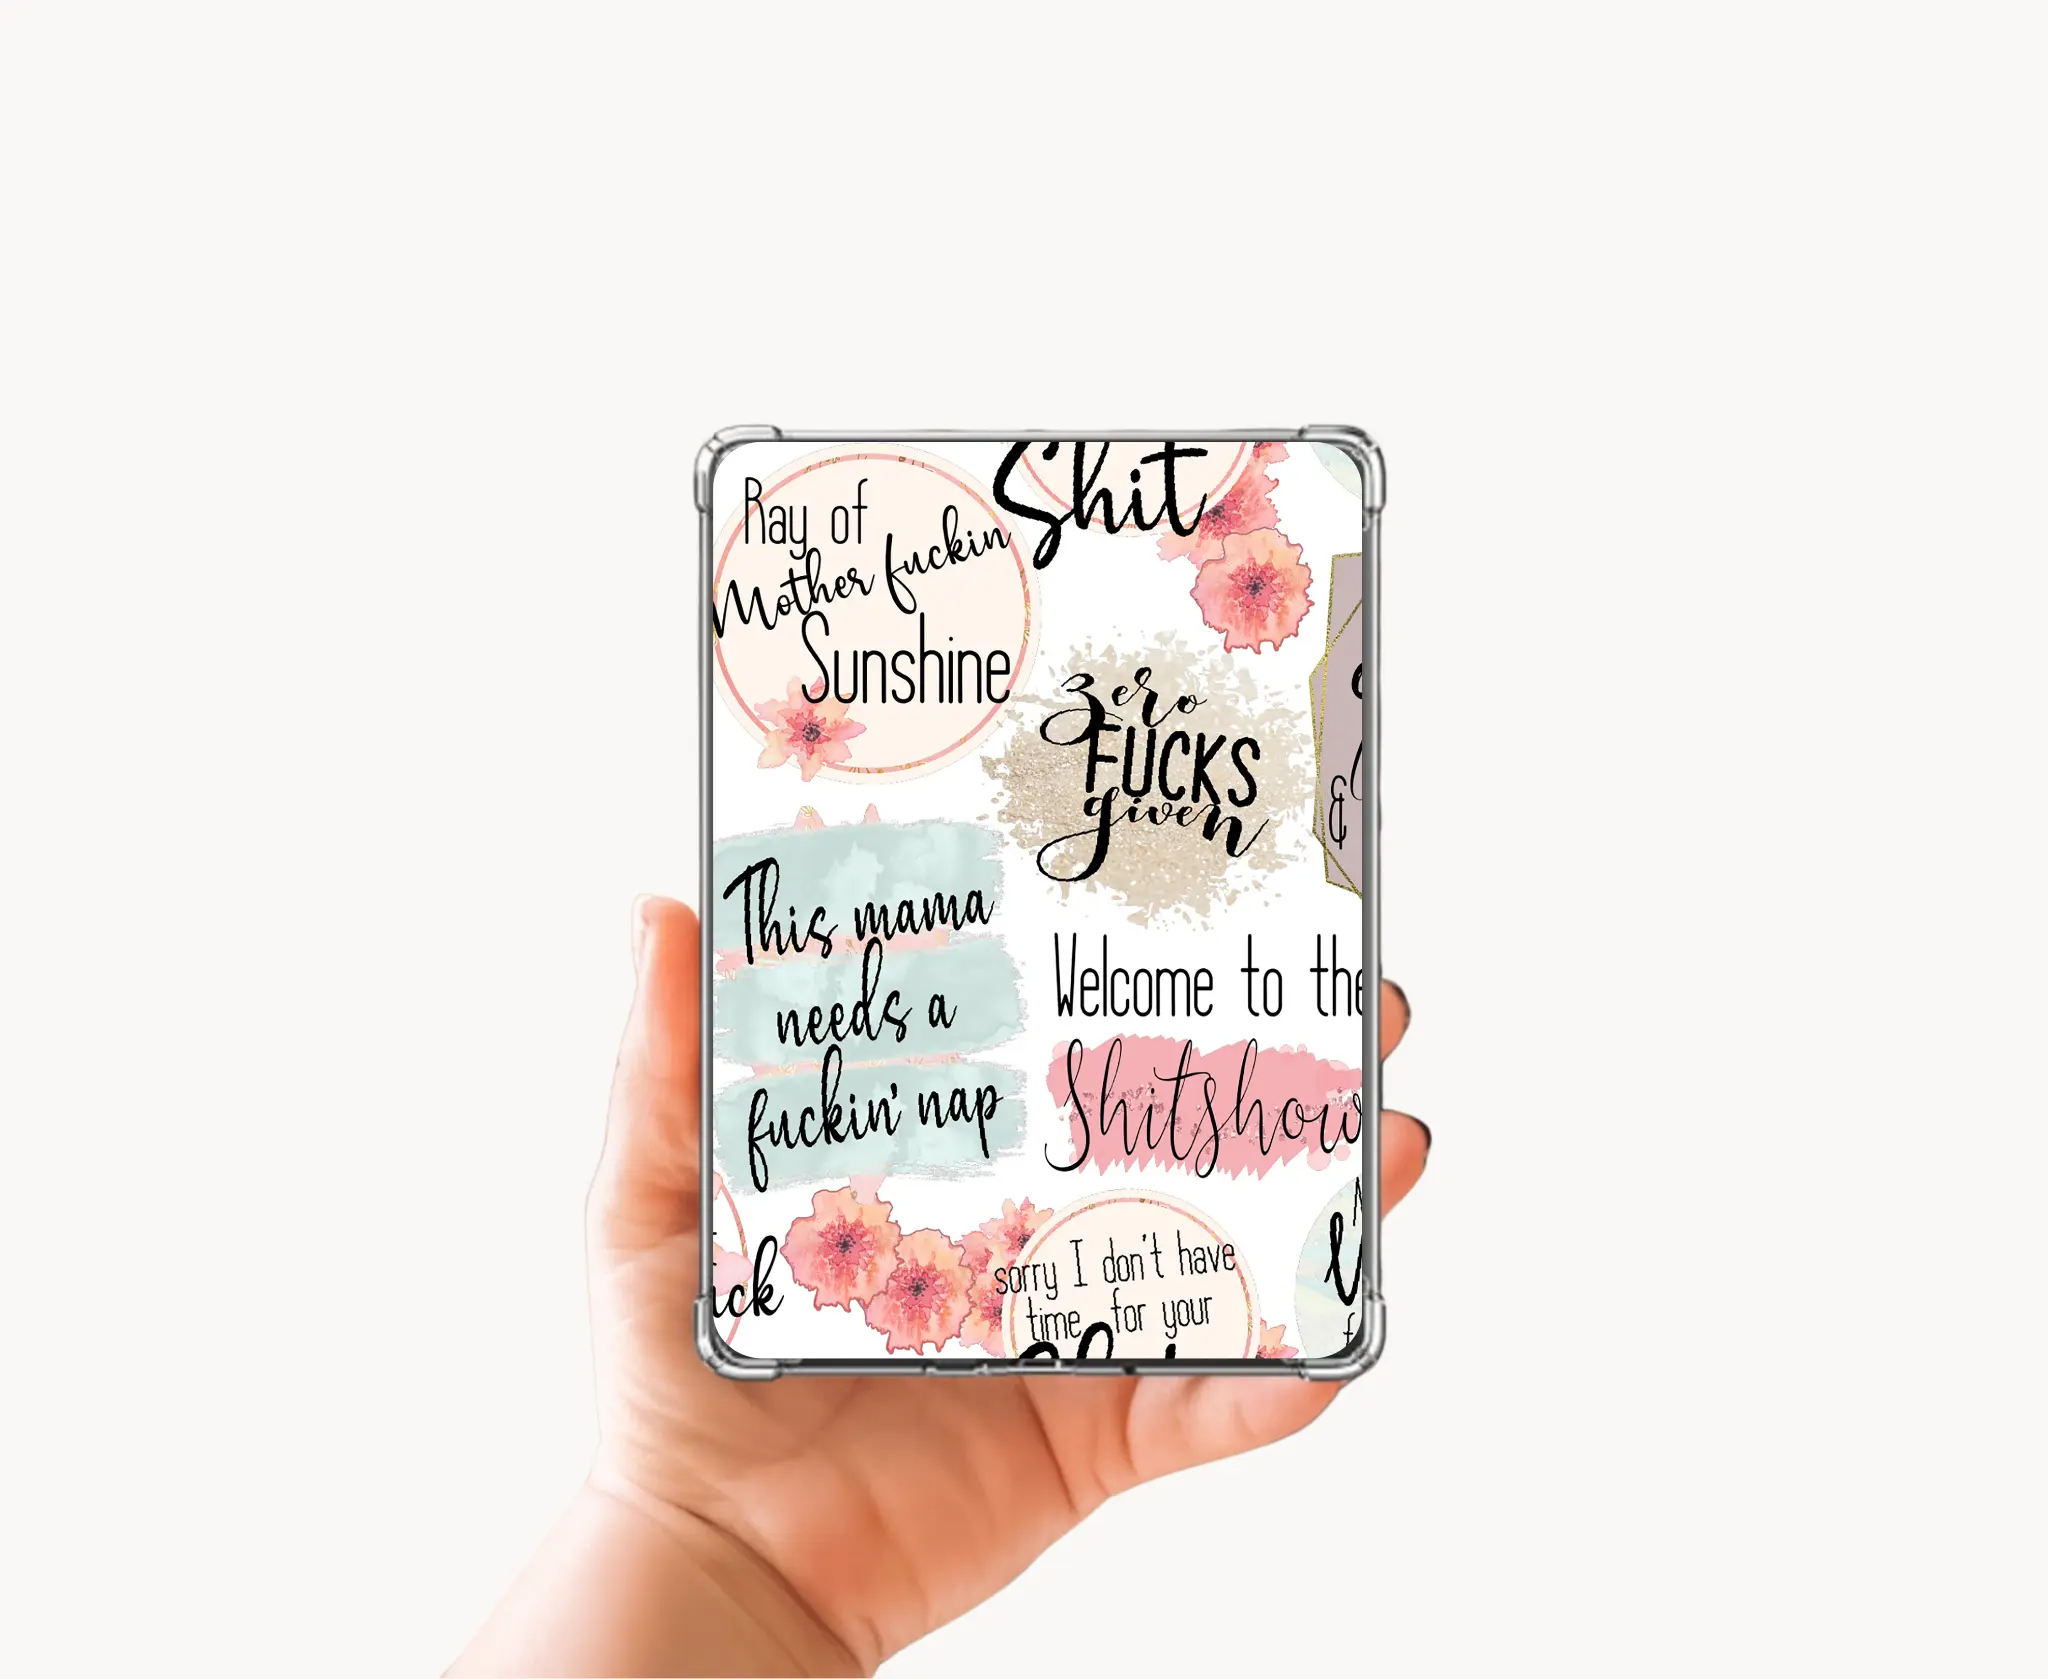 Shit
Ray of
Mother fuckin
Sunshine
zero
FUCKS
given
&
This mama
needs a
fuckin' nap
Welcome to the
Shitshow
sorry I don't have
time for your